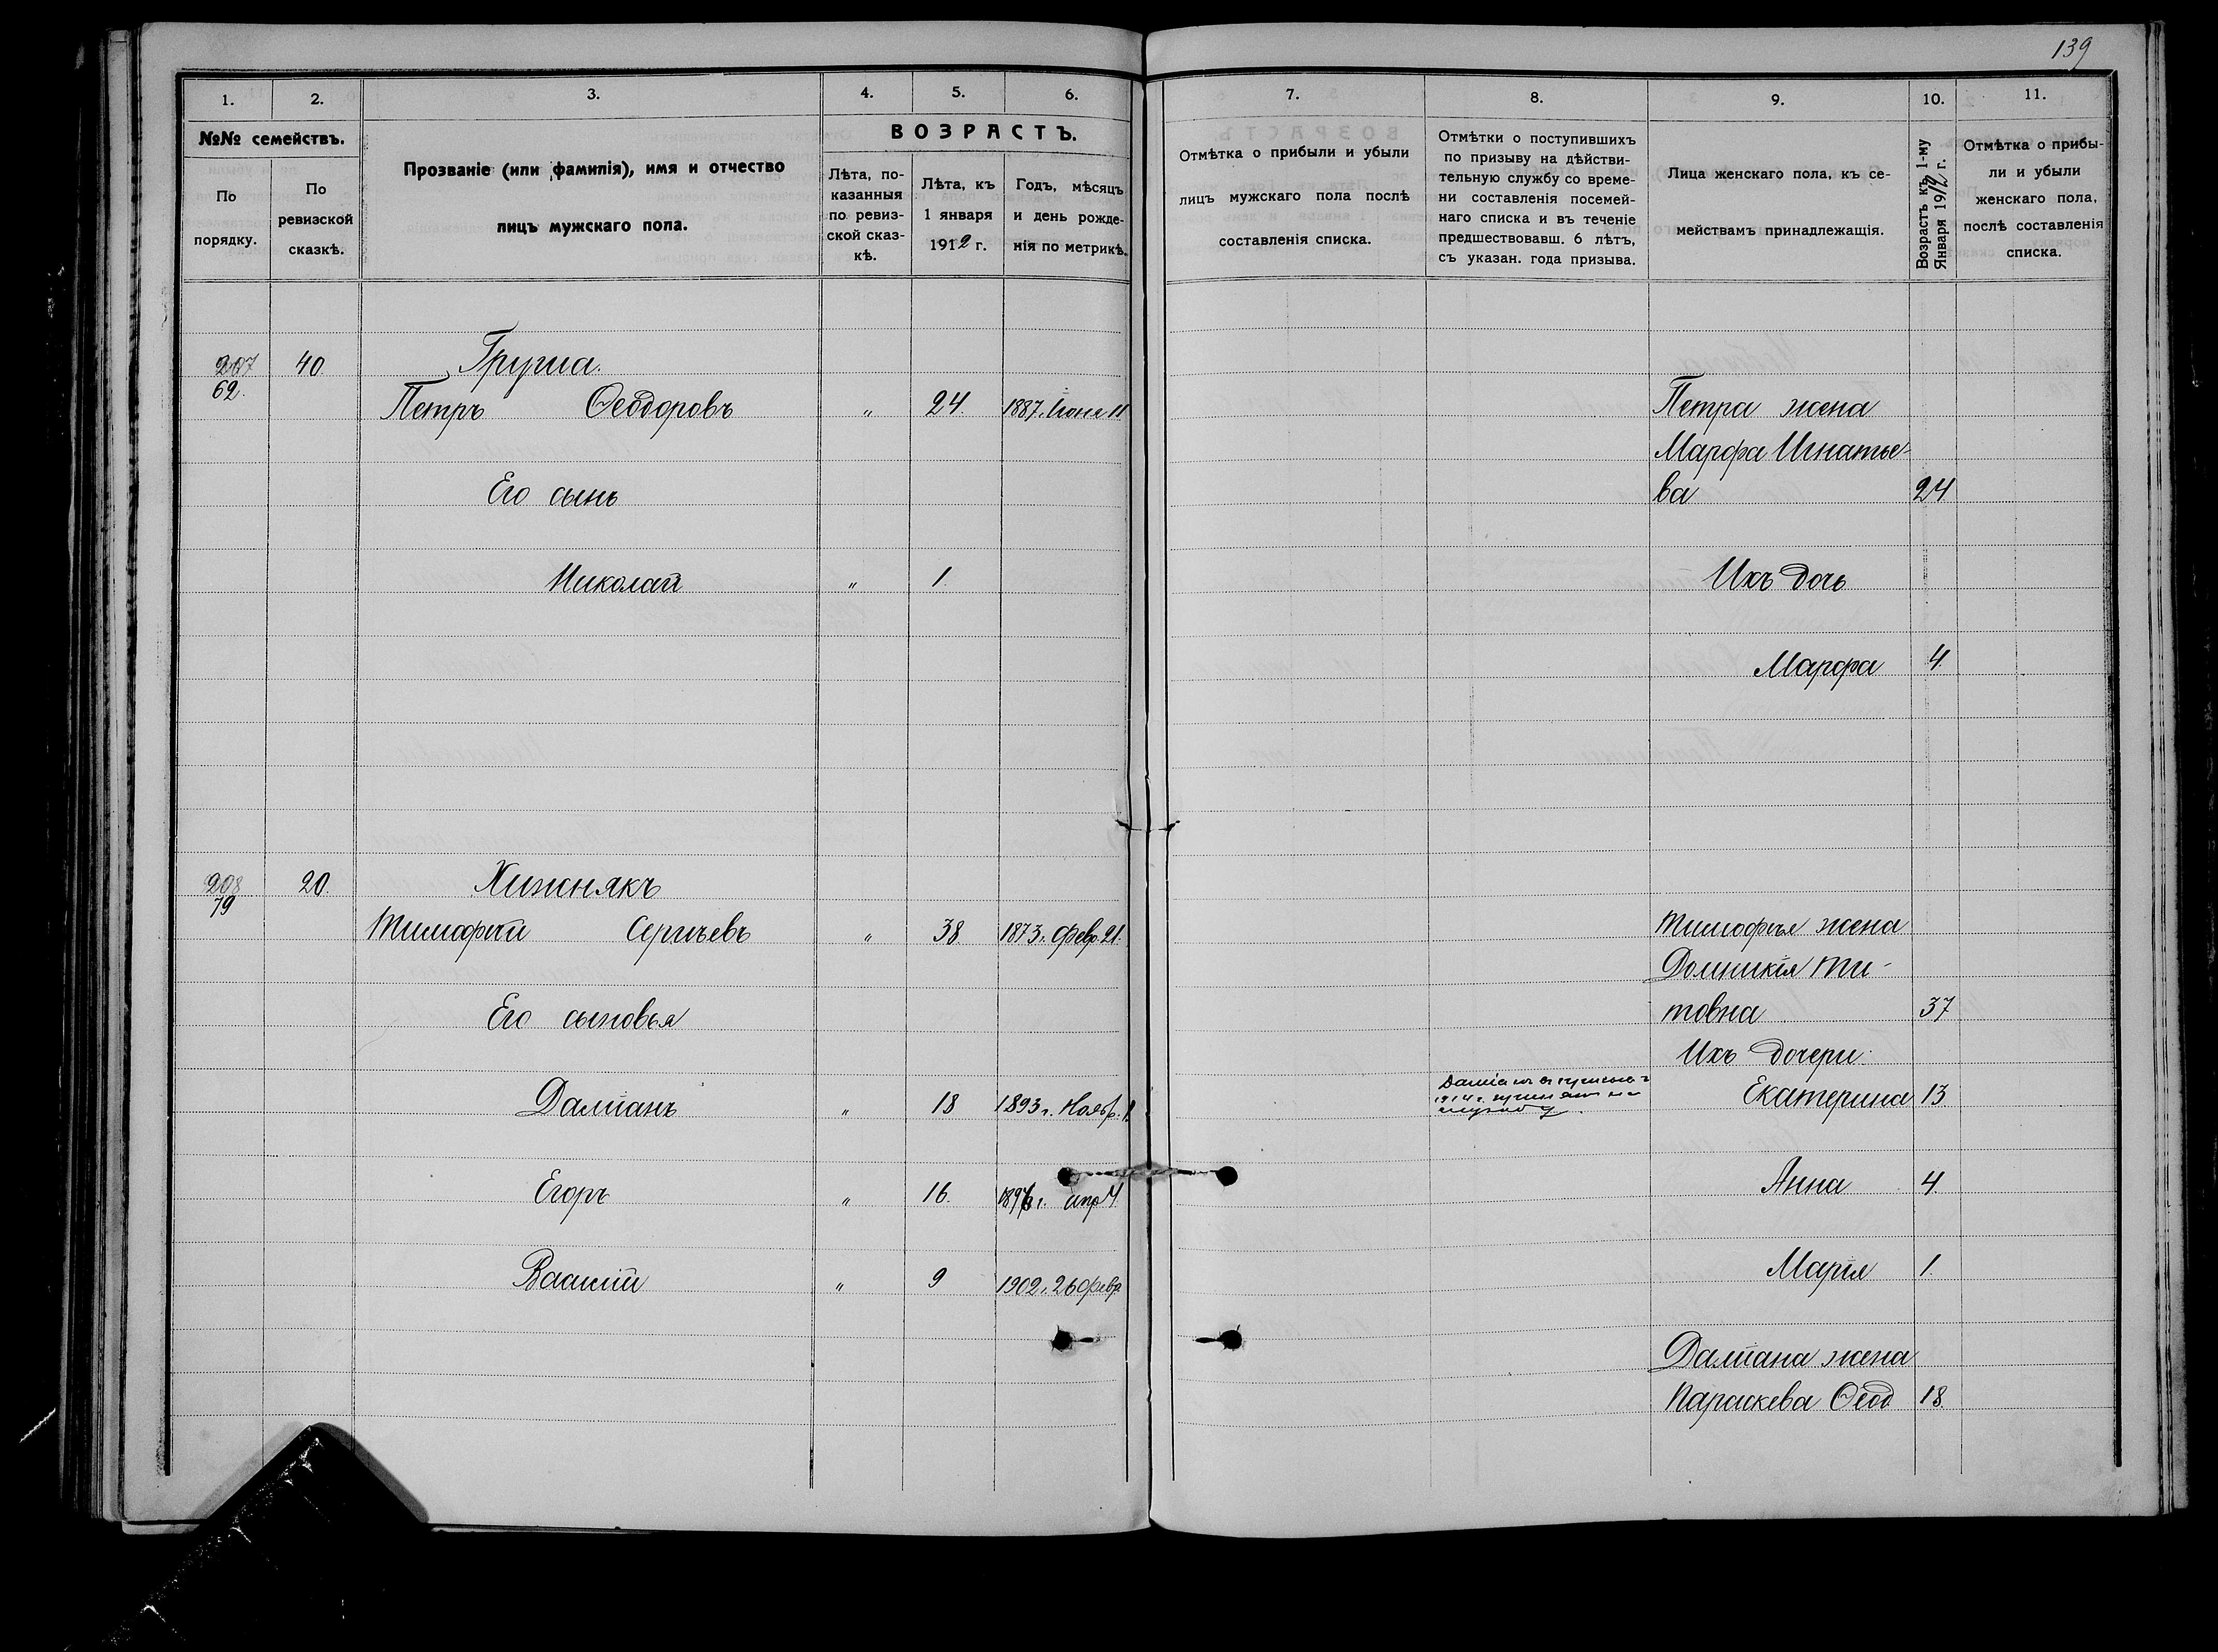 139
1. 2. 3. 4. 5. 6.
№№ семействъ.
По порядку.
По ревизской сказкѣ.
Прозваніе (или фамилія), имя и отчество
лицъ мужскаго пола.
ВОЗРАСТЪ.
Лѣта, по-
казанныя
по ревиз-
ской сказ-
кѣ.
Лѣта, къ
1 января
1912 г.
Годъ, мѣсяцъ
и день рожде-
нія по метрикѣ.
207 40. Груша.
62.
Петръ Ѳеодоровъ " 24. 1887 г. Іюня 11
Его сынъ
Николай " 1.
208 20. Хижнякъ
79
Тимофѣй Сергѣевъ " 38 1873 г. Февр 21.
Его сыновья
Даміанъ " 18 1893 г. Ноябр. 1
Егоръ " 16. 1896 г. апр 4.
Василій " 9 1902 г. 26 февр
7. 8. 9. 10. 11.
Отмѣтка о прибыли и убыли
лицъ мужскаго пола послѣ
составленія списка.
Отмѣтки о поступившихъ
по призыву на дѣйстви-
тельную службу со време-
ни составленія посемей-
наго списка и въ теченіе
предшествовавш. 6 лѣтъ,
съ указан. года призыва.
Лица женскаго пола, къ се-
мействамъ принадлежащія.
Возрастъ къ 1-му
Января 1912 г.
Отмѣтка о прибы-
ли и убыли
женскаго пола,
послѣ составленія
списка.
Петра жена
Марфа Игнатье-
ва 24
Ихъ дочь
Марфа 4.
Тимофѣя жена
Домникія Ти-
товна 37
Ихъ дочери.
Даміанъ въ призывъ
1914 г. принятъ на
службу.
Екатерина 13
Анна 4.
Марія 1.
Даміана жена
Параскева Ѳеод 18.